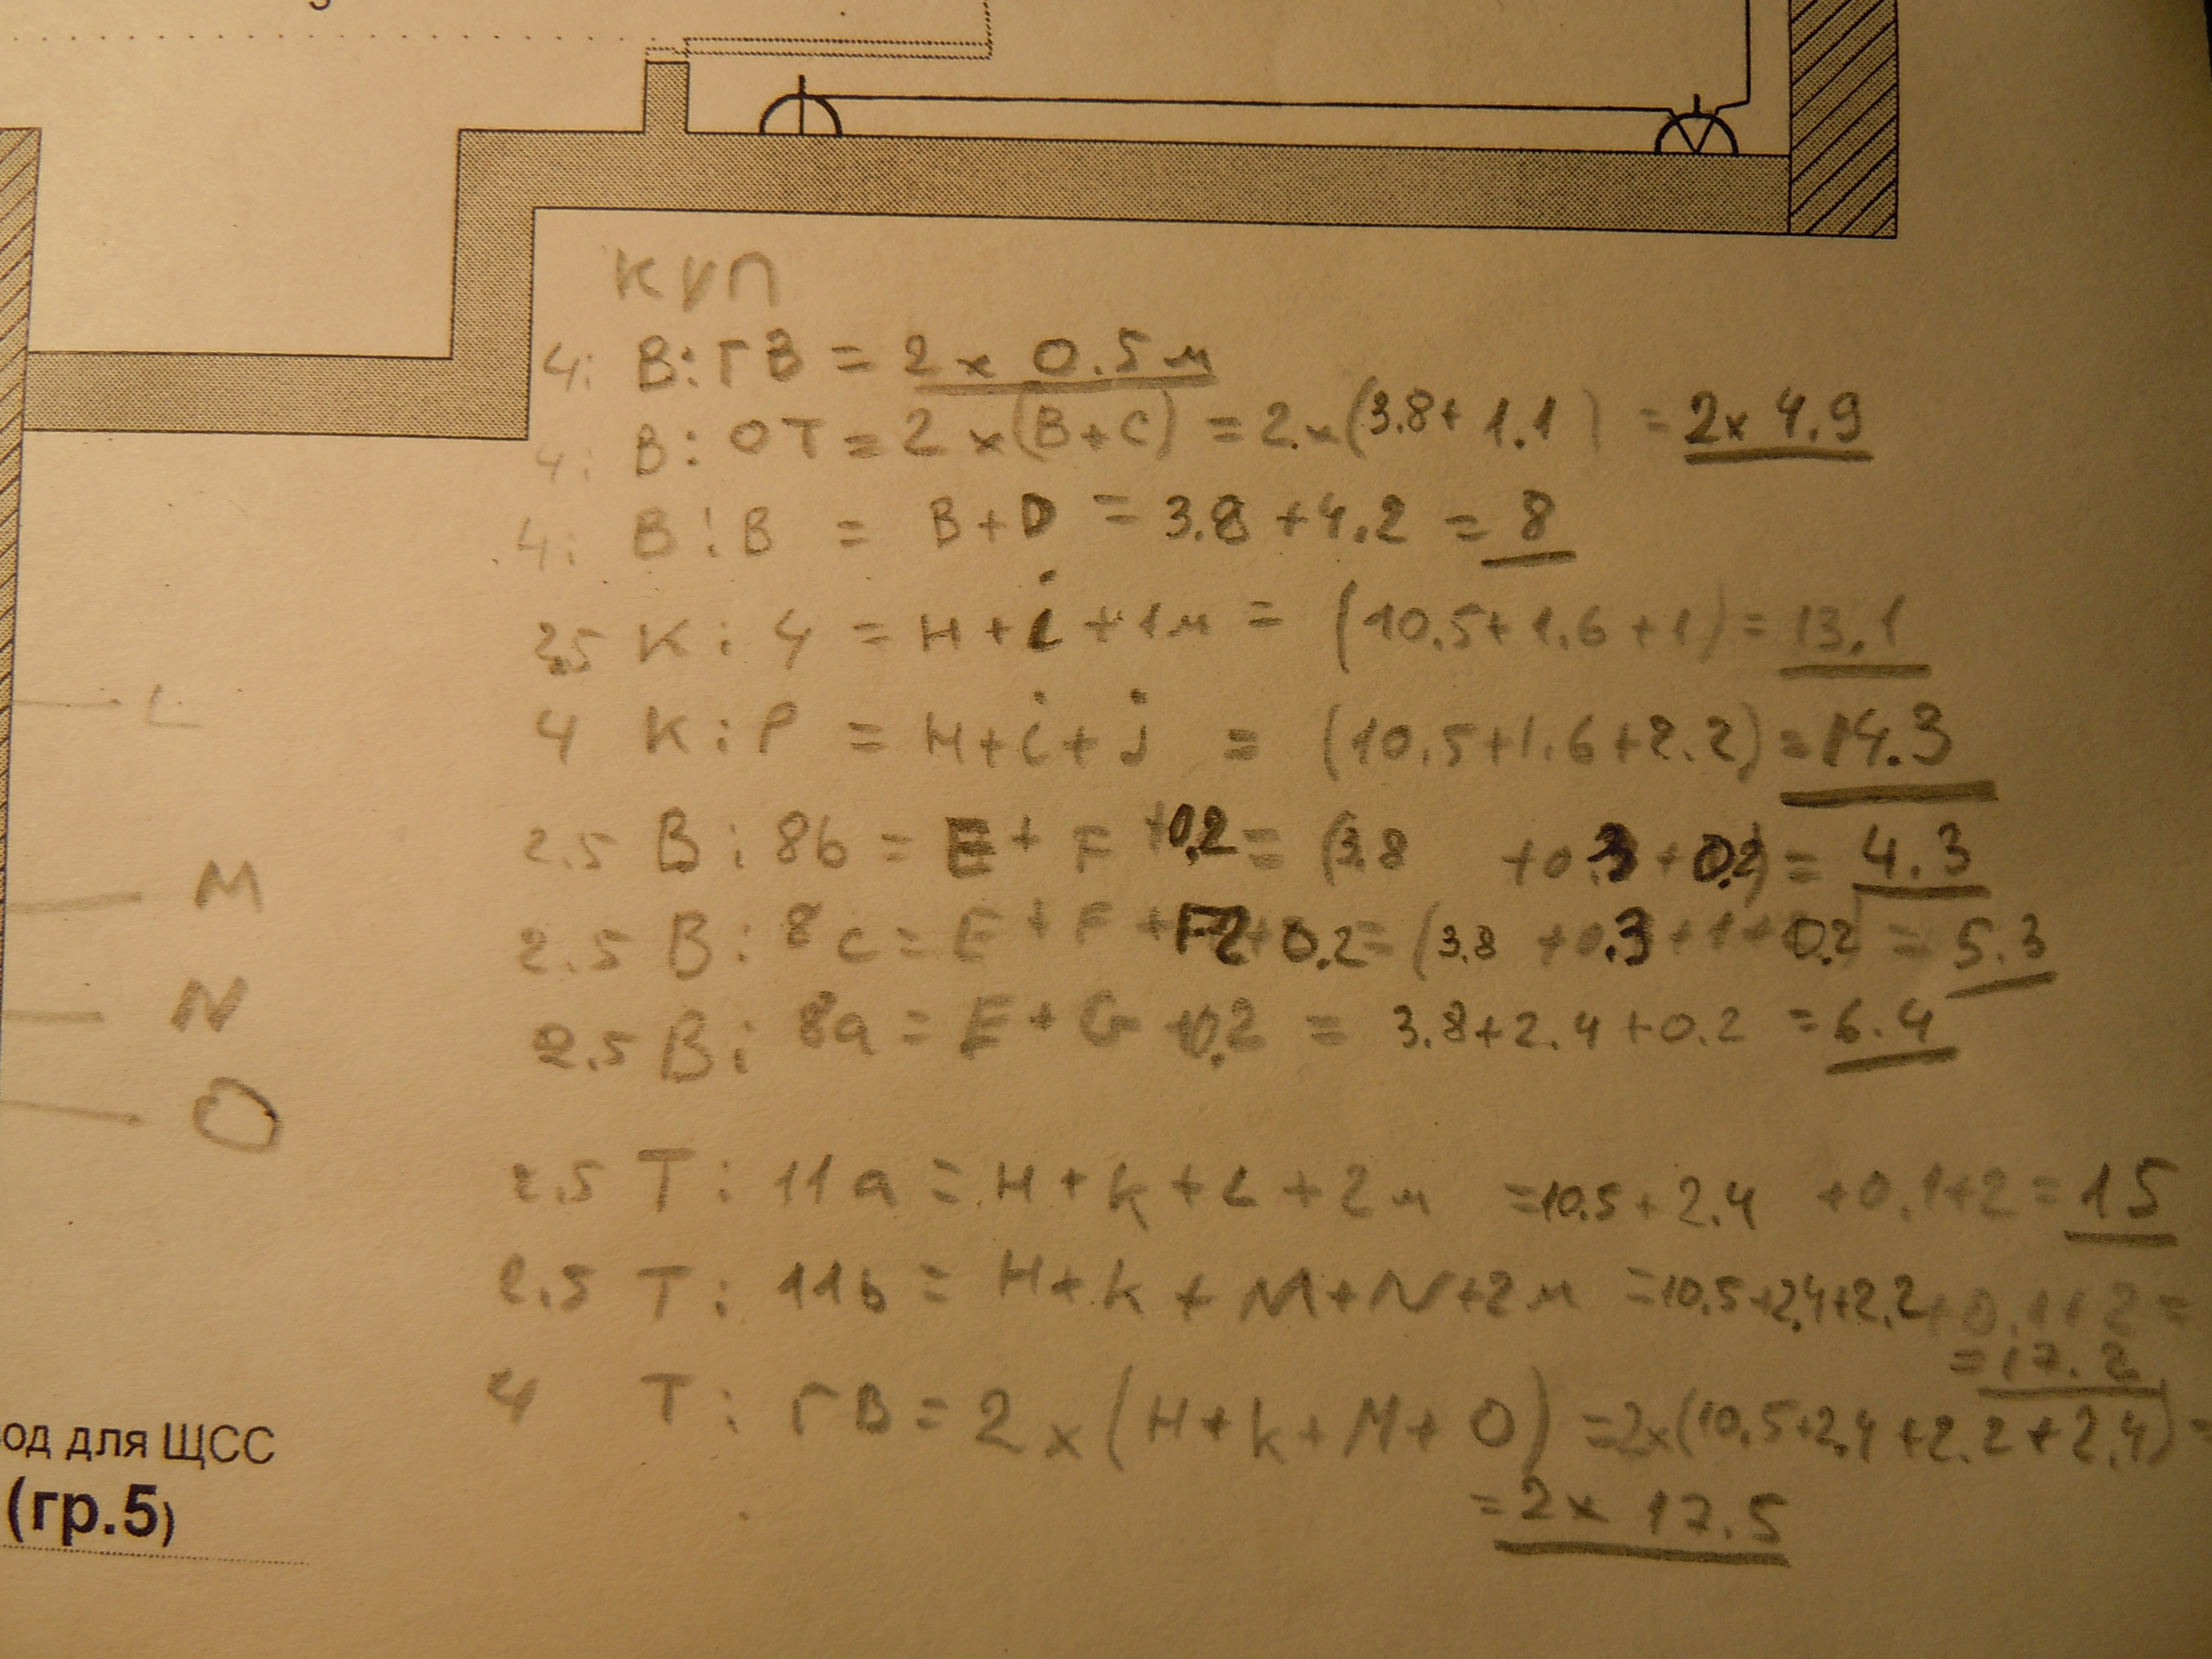 КУП
4: В: ГВ = 2 x 0.5м
4: В: ОТ = 2 x (B+C) = 2 x (3.8+1.1) = 2x 4.9
4: В: В = B+D = 3.8+4.2 = 8
2.5 К: 4 = H+i+1м = (10.5+1.6+1) = 13.1
4 К: Р = H+i+j = (10.5+1.6+2.2) = 14.3
L
2.5 В: 8b = E+F+0.2 = (3.8 +0.3+0.2) = 4.3
M
2.5 В: 8c = E+F+F2+0.2 = (3.8 +0.3+1+0.2) = 5.3
N
2.5 В: 8a = E+G+0.2 = 3.8+2.4+0.2 = 6.4
O
2.5 Т: 11a = H+K+L+2м =10.5+2.4 +0.1+2 = 15
2.5 Т: 11b = H+K+M+N+2м =10.5+2.4+2.2+0.1+2 =
=17.2
4 Т: ГВ = 2 x (H+K+M+O) =2x(10.5+2.4+2.2+2.4) =
= 2x 17.5
од для ЩСС
(гр.5)